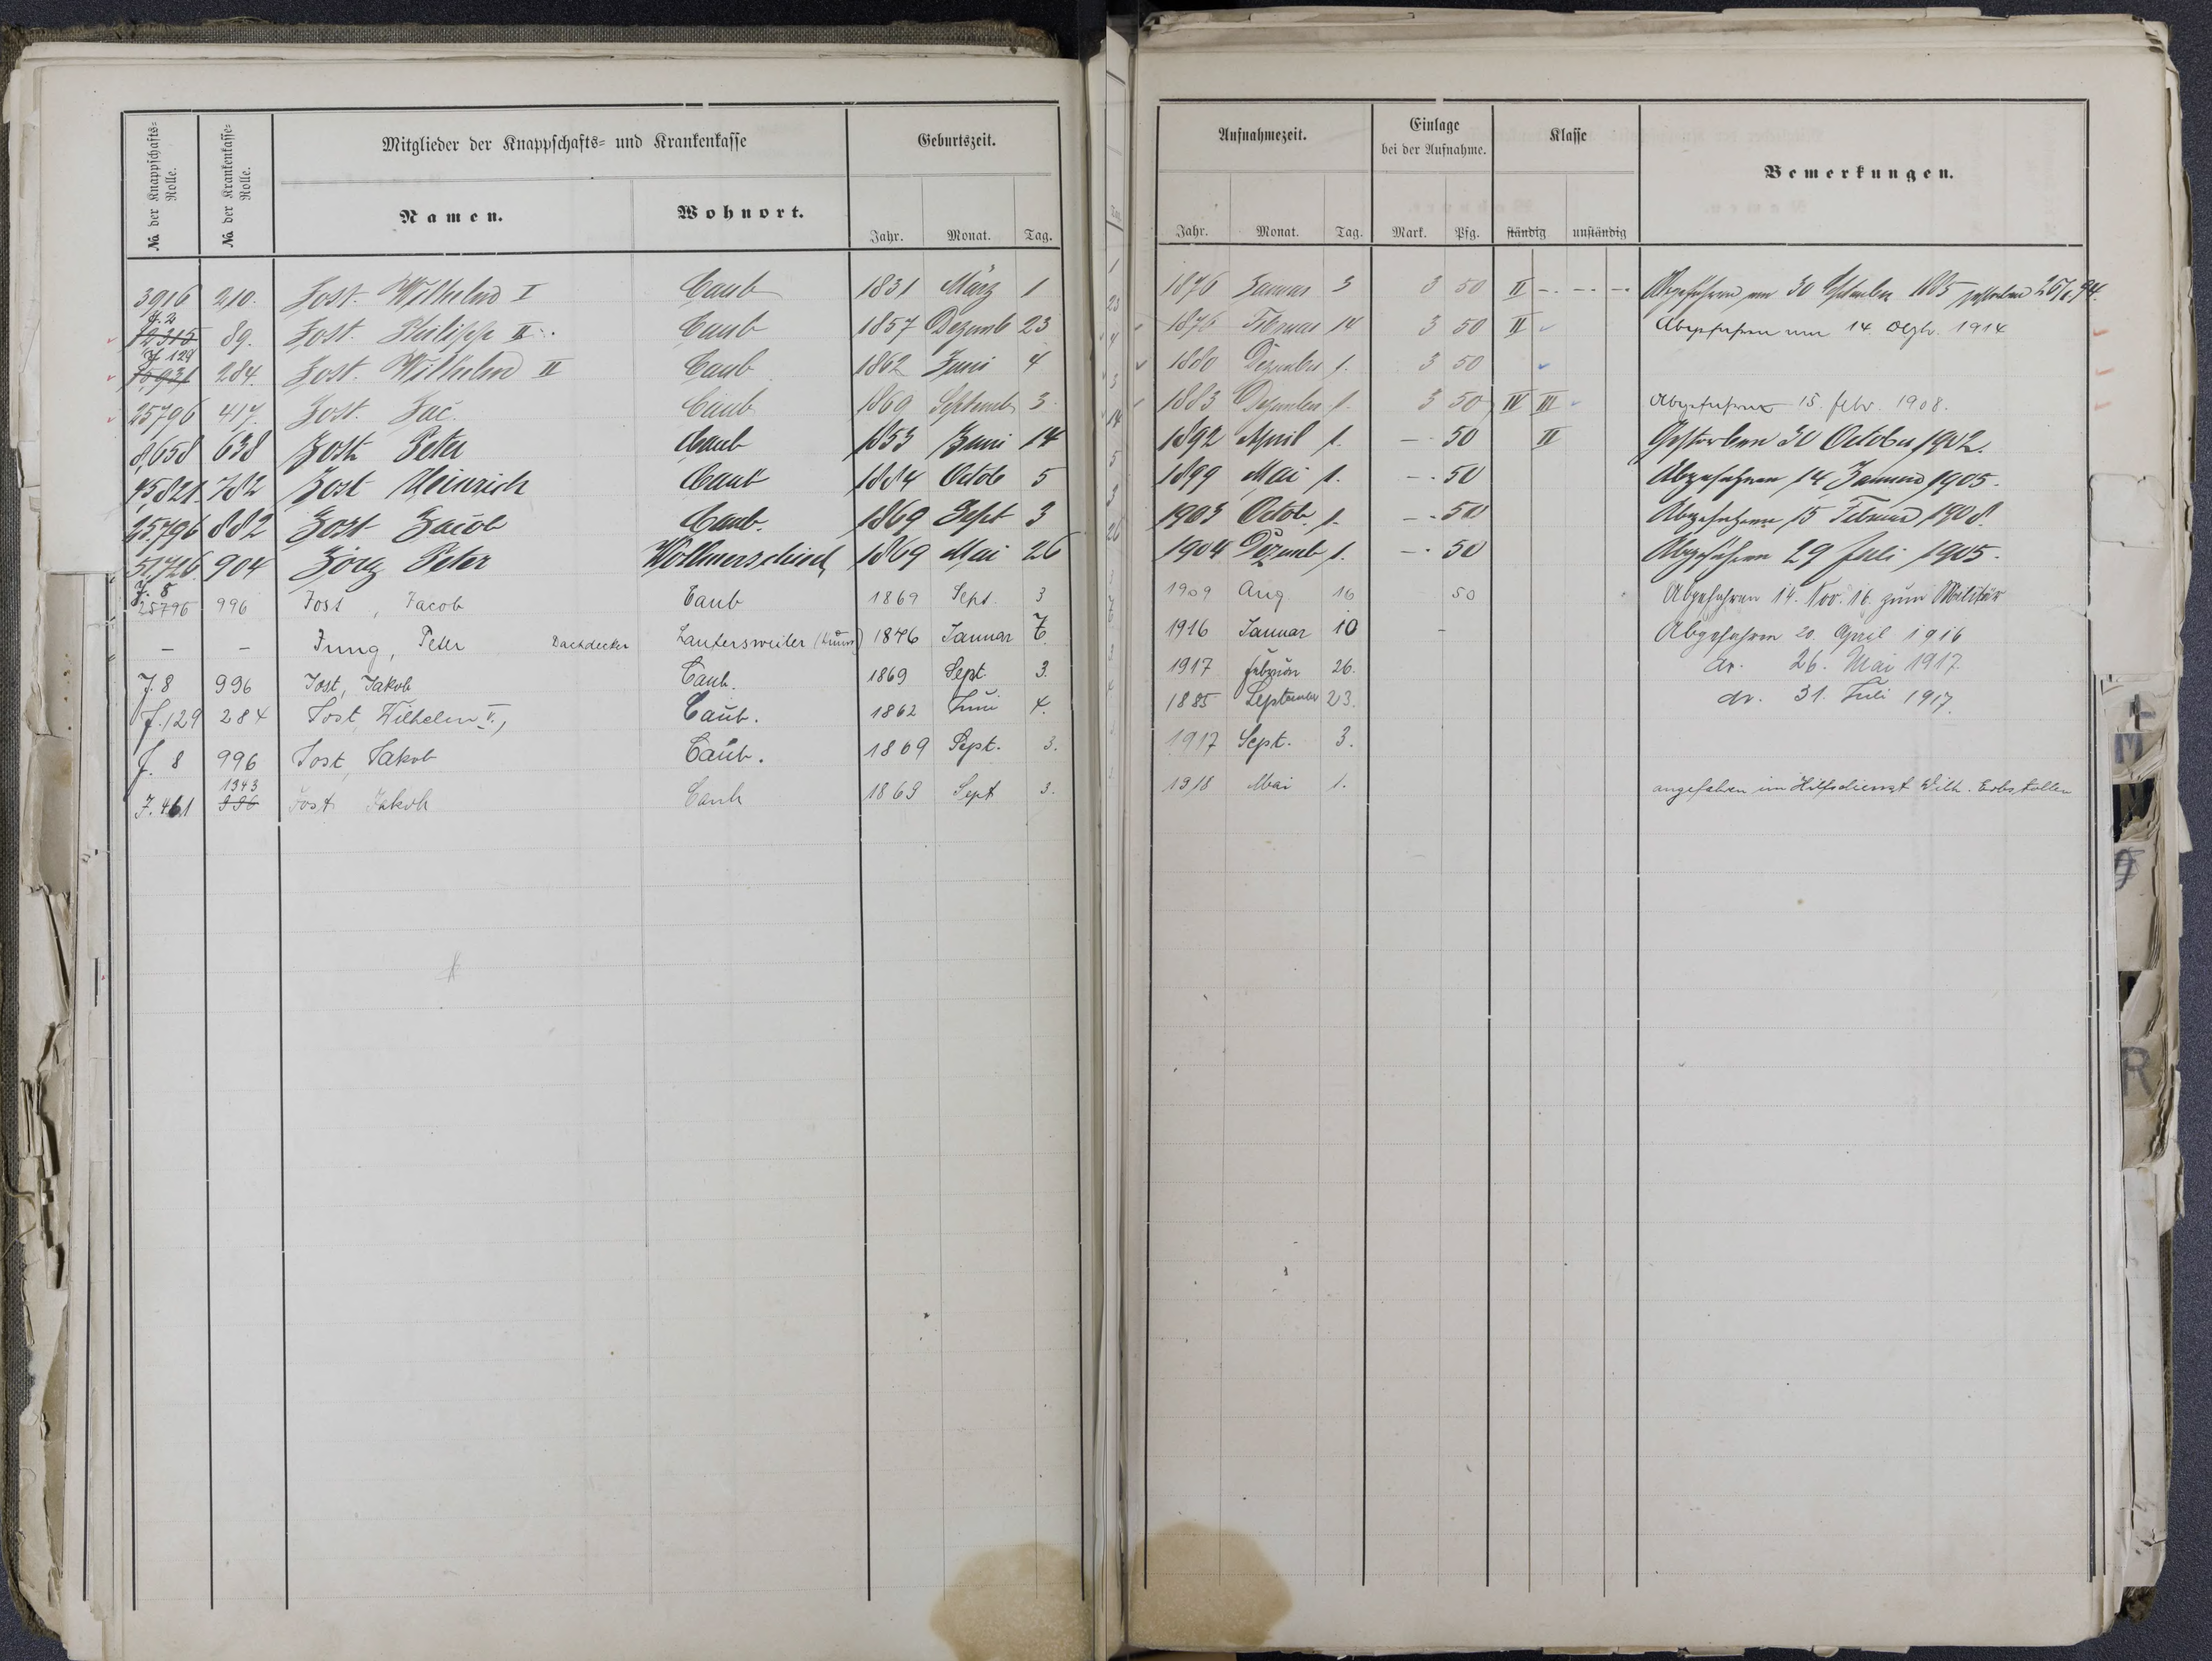 No der Knappschafts-Rolle. No der Krankenkasse-Rolle. Mitglieder der Knappschafts- und Krankenkasse Geburtszeit. Aufnahmezeit. Einlage bei der Aufnahme. Klasse Bemerkungen.
Namen. Wohnort. Jahr. Monat. Tag. Jahr. Monat. Tag. Mark. Pfg. ständig unständig
3916 210. Jost. Wilhelm I Caub 1831 März 1 1876 Januar 3 3 50 II Abgefahren am 30 September 1885 gestorben
J. 2
12315 89. Jost. Philipp II. Caub 1857 Dezemb 23 1876 Februar 14 3 50 II Abgefahren am 14. Dezbr. 1914
J. 129
15931 284. Jost. Wilhelm II Caub 1862 Juni 4 1880 Dezember 1. 3 50
25796 417. Jost. Jac. Caub 1869 Septemb 3. 1883 Dezember 1. 3 50 IV III Abgefahren 15. Febr. 1908.
8,658 638 Jost Peter Caub 1853 Juni 14 1892 April 1. - 50 II Gestorben 30 October 1902.
45821. 782 Jost Heinrich Caub 1884 Octob 5 1899 Mai 1. - 50 Abgefahren 14 Januar 1905.
25,796 882 Jost Jacob Caub. 1869 Sept 3 1903 Octob. 1. - 50 Abgefahren 15 Februar 1908.
51,726. 904 Jörg Peter Wollmerschied 1869 Mai 26 1904 Dezemb 1. - 50 Abgefahren 29 Juli 1905.
J. 8
25796 996 Jost, Jacob Caub 1869 Sept. 3 1909 Aug. 16 50 Abgefahren 14. Nov. 16. zum Militär
- - Jung, Peter Dachdecker Lautersweiler 1876 Januar 7. 1916 Januar 10 - Abgefahren 20. April 1916
J. 8 996 Jost, Jakob Caub. 1869 Sept. 3. 1917 Februar 26. do. 26. Mai 1917.
J. 129 284 Jost, Wilhelm II., Caub. 1862 Juni 4. 1885 September 23. do. 31. Juli 1917.
J. 8 996 Jost, Jakob Caub. 1869 Sept. 3. 1917 Sept. 3.
1343
J. 461 996 Jost Jakob Caub 1869 Sept 3. 1918 Mai 1. angefahren im Hilfsdienst Wilh. Erbstollen